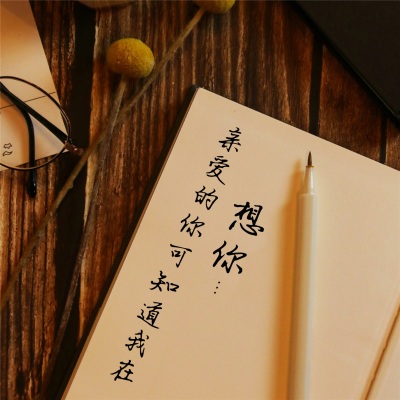 亲爱的你可知道我在
想你…